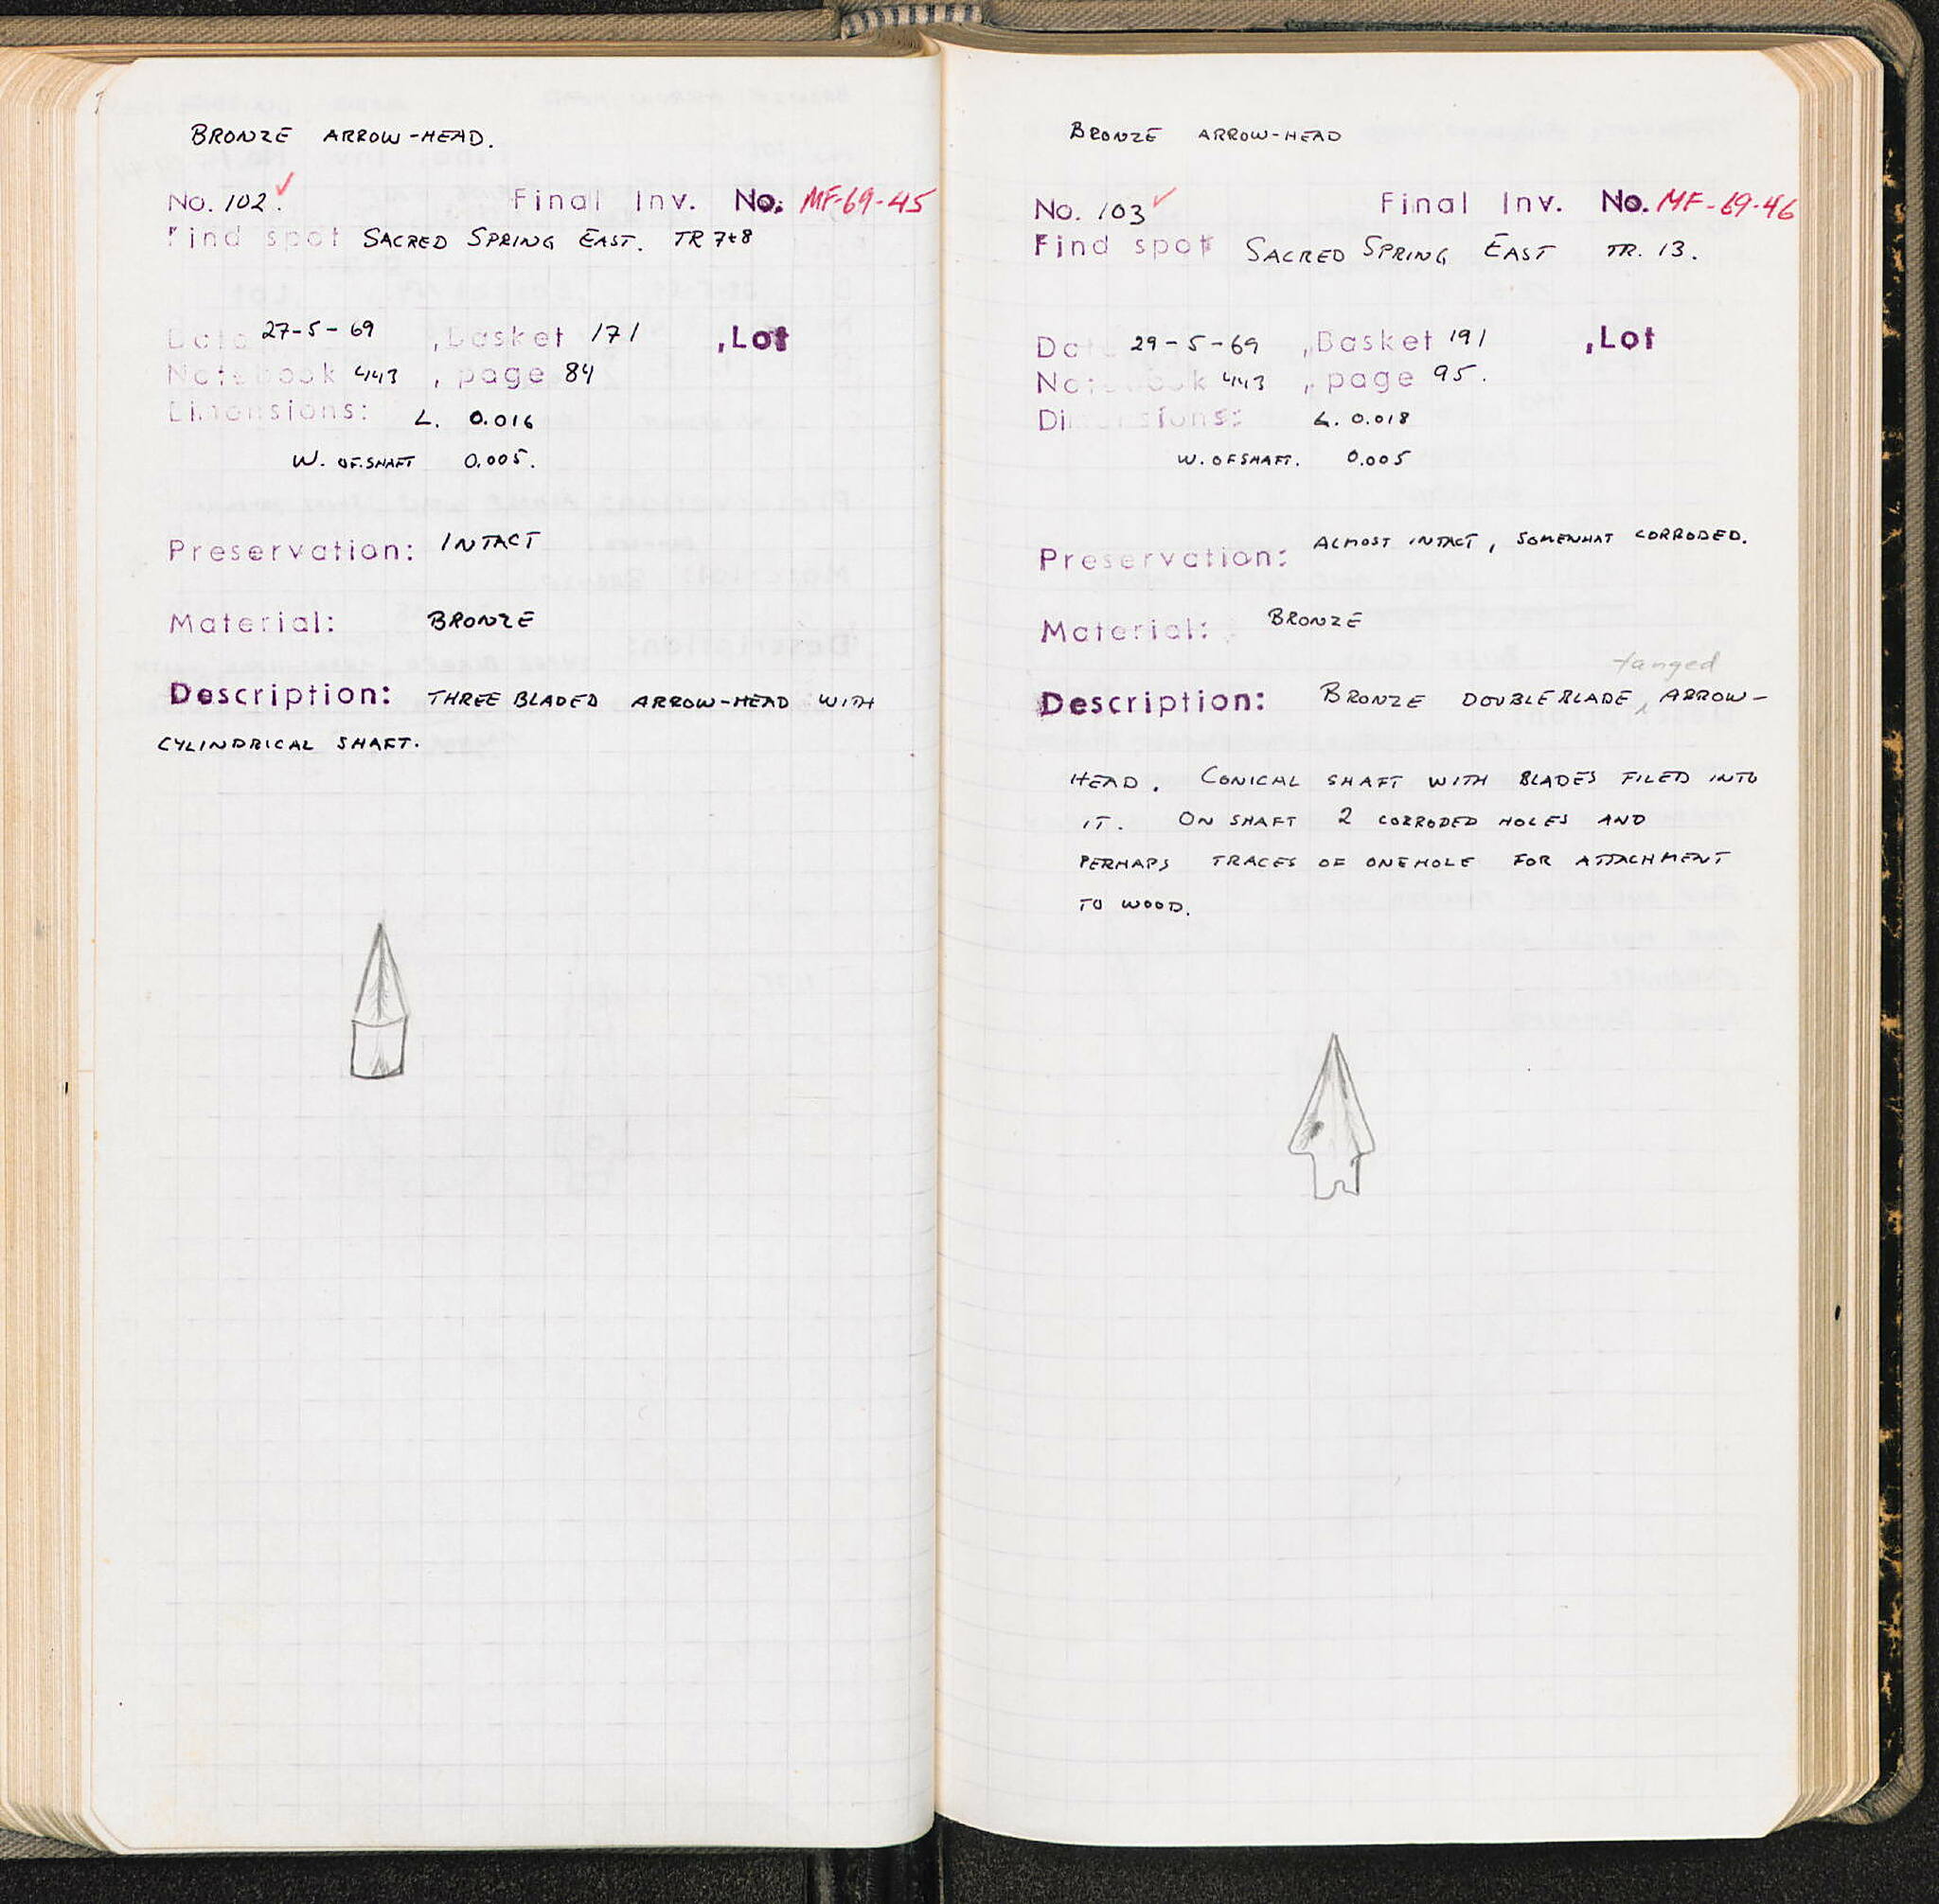 BRONZE ARROW-HEAD.
No. 102. Final Inv. No. MF-69-45
Find spot SACRED SPRING EAST. TR 7+8
Date 27-5-69 , basket 171 , Lot
Notebook 443 , page 84
Dimensions: L. 0.016
W. OF SHAFT 0.005.
Preservation: INTACT
Material: BRONZE
Description: THREE BLADED ARROW-HEAD WITH
CYLINDRICAL SHAFT.
BRONZE ARROW-HEAD
No. 103 Final Inv. No. MF-69-46
Find spot SACRED SPRING EAST TR. 13.
Date 29-5-69 , Basket 191 , Lot
Notebook 443 , page 95.
Dimensions: L. 0.018
W. OF SHAFT. 0.005
Preservation: ALMOST INTACT, SOMEWHAT CORRODED.
Material: BRONZE
tanged
Description: BRONZE DOUBLEBLADE, ARROW-
HEAD. CONICAL SHAFT WITH BLADES FILED INTO
IT. ON SHAFT 2 CORRODED HOLES AND
PERHAPS TRACES OF ONE HOLE FOR ATTACHMENT
TO WOOD.